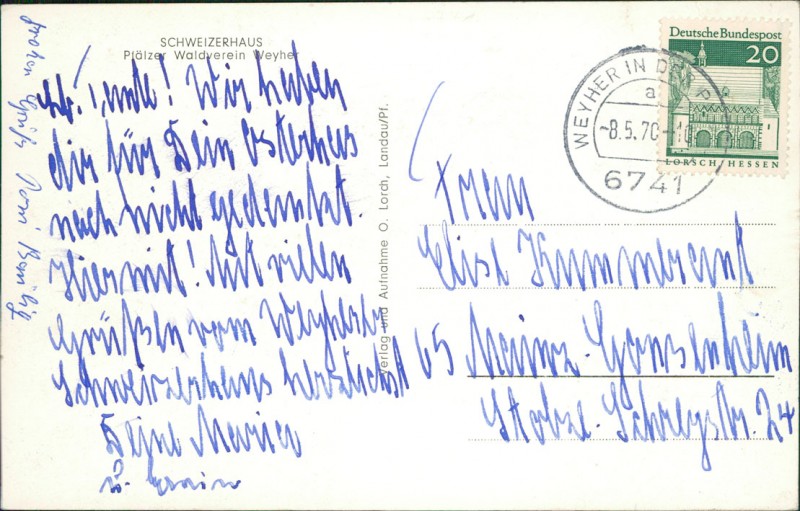 SCHWEIZERHAUS
Pfälzer Waldverein Weyher
Lb. Tante! Wir haben
dir für Dein Osterhas
noch nicht gedankt.
Hiermit! Mit vielen
Grüßen vom Weyherer
Schweizerhaus herzlichst
Deine Maria
u. Erwin
Verlag und Aufnahme O. Lorch, Landau/Pf.
Deutsche Bundespost
20
LORSCH/HESSEN
WEYHER IN DER P
a
-8.5.70-10
6741
Frau
Elise
65 Mainz-Gonsenheim
Str. 24